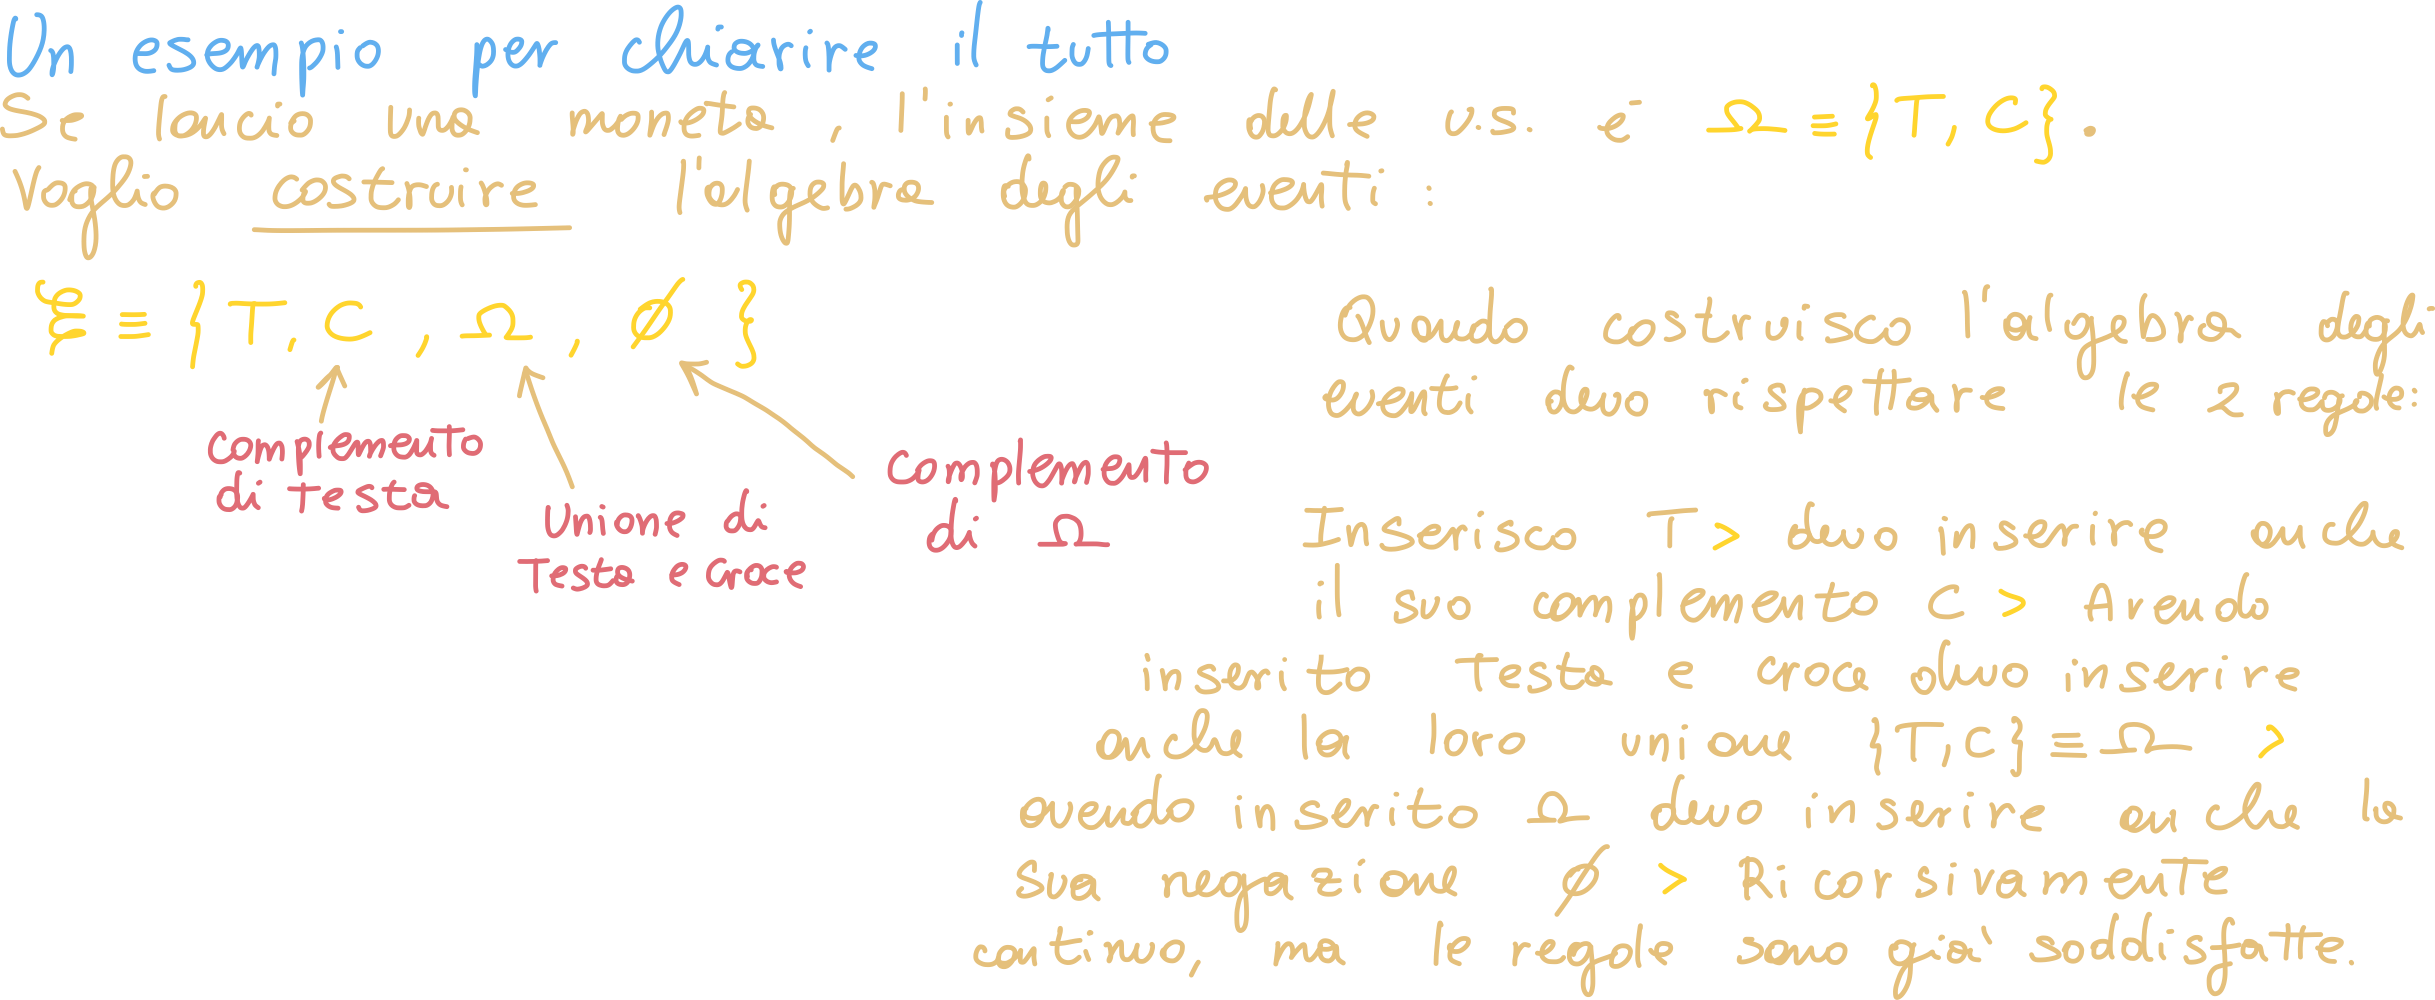 Un esempio per chiarire il tutto
Se lancio una moneta, l'insieme delle v.s. è Ω ≡ {T, C}.
Voglio costruire l'algebra degli eventi:
ξ ≡ {T, C, Ω, ∅}
Complemento
di Testa
Unione di
Testa e Croce
Complemento
di Ω
Quando costruisco l'algebra degli
eventi devo rispettare le 2 regole:
Inserisco T > devo inserire anche
il suo complemento C > Avendo
inserito Testa e croce devo inserire
anche la loro unione {T,C} ≡ Ω >
avendo inserito Ω devo inserire anche la
sua negazione ∅ > Ricorsivamente
continuo, ma le regole sono già soddisfatte.